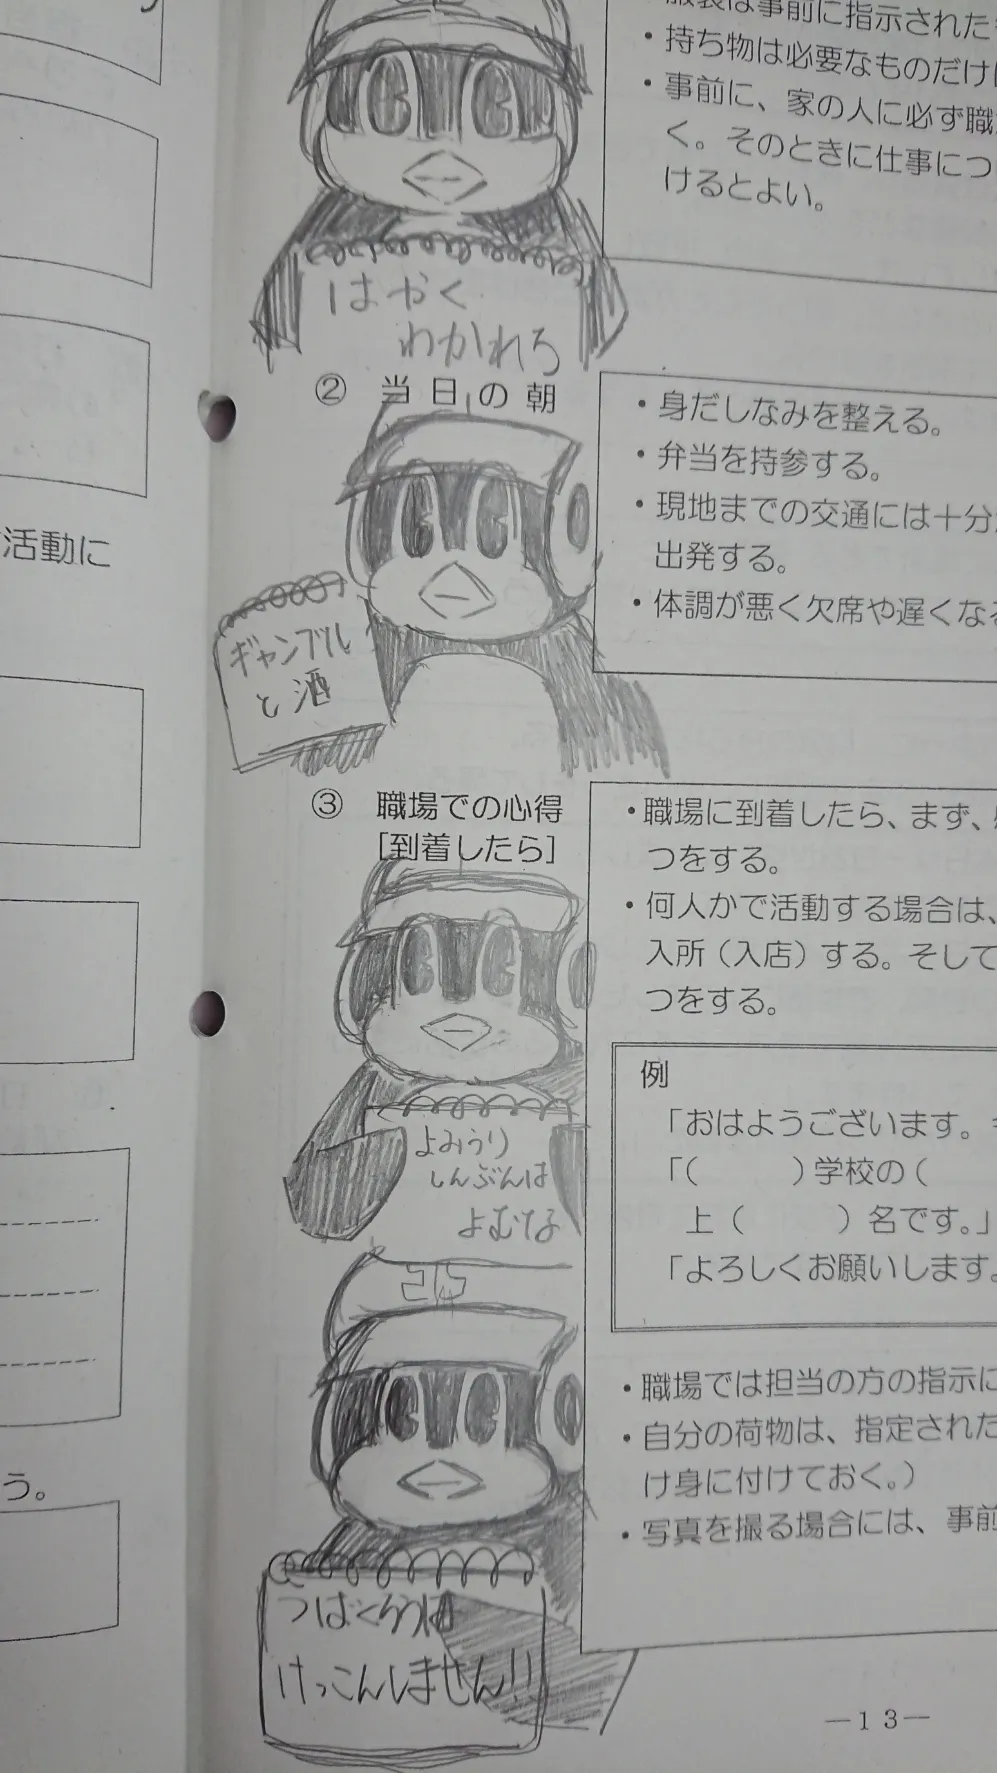 服装は事前に指示された
・持ち物は必要なものだけ
・事前に、家の人に必ず職
く。そのときに仕事につ
けるとよい。
はやく
わかれろ
② 当日の朝
・身だしなみを整える。
・弁当を持参する。
・現地までの交通には十分
出発する。
・体調が悪く欠席や遅くなる
活動に
ギャンブル
と酒
③ 職場での心得
[到着したら]
・職場に到着したら、まず、
つをする。
・何人かで活動する場合は、
入所(入店)する。そして
つをする。
例
「おはようございます。
「(　　　)学校の(
上(　　　)名です。」
「よろしくお願いします。
よみうり
しんぶんは
よむな
・職場では担当の方の指示に
・自分の荷物は、指定された
け身に付けておく。)
・写真を撮る場合には、事前
う。
つばくろうは
けっこんしません!!
―13―